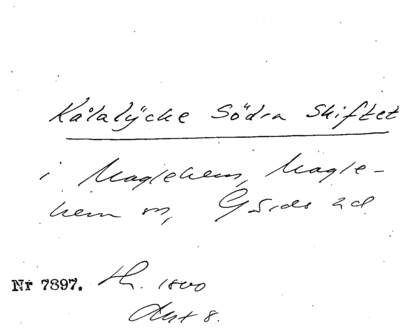 Kålalÿcke Södra Skiftet
i Maglehem, Magle-
hem sn, Gärds hd
Nr 7397. Lh. 1800
Akt 8.